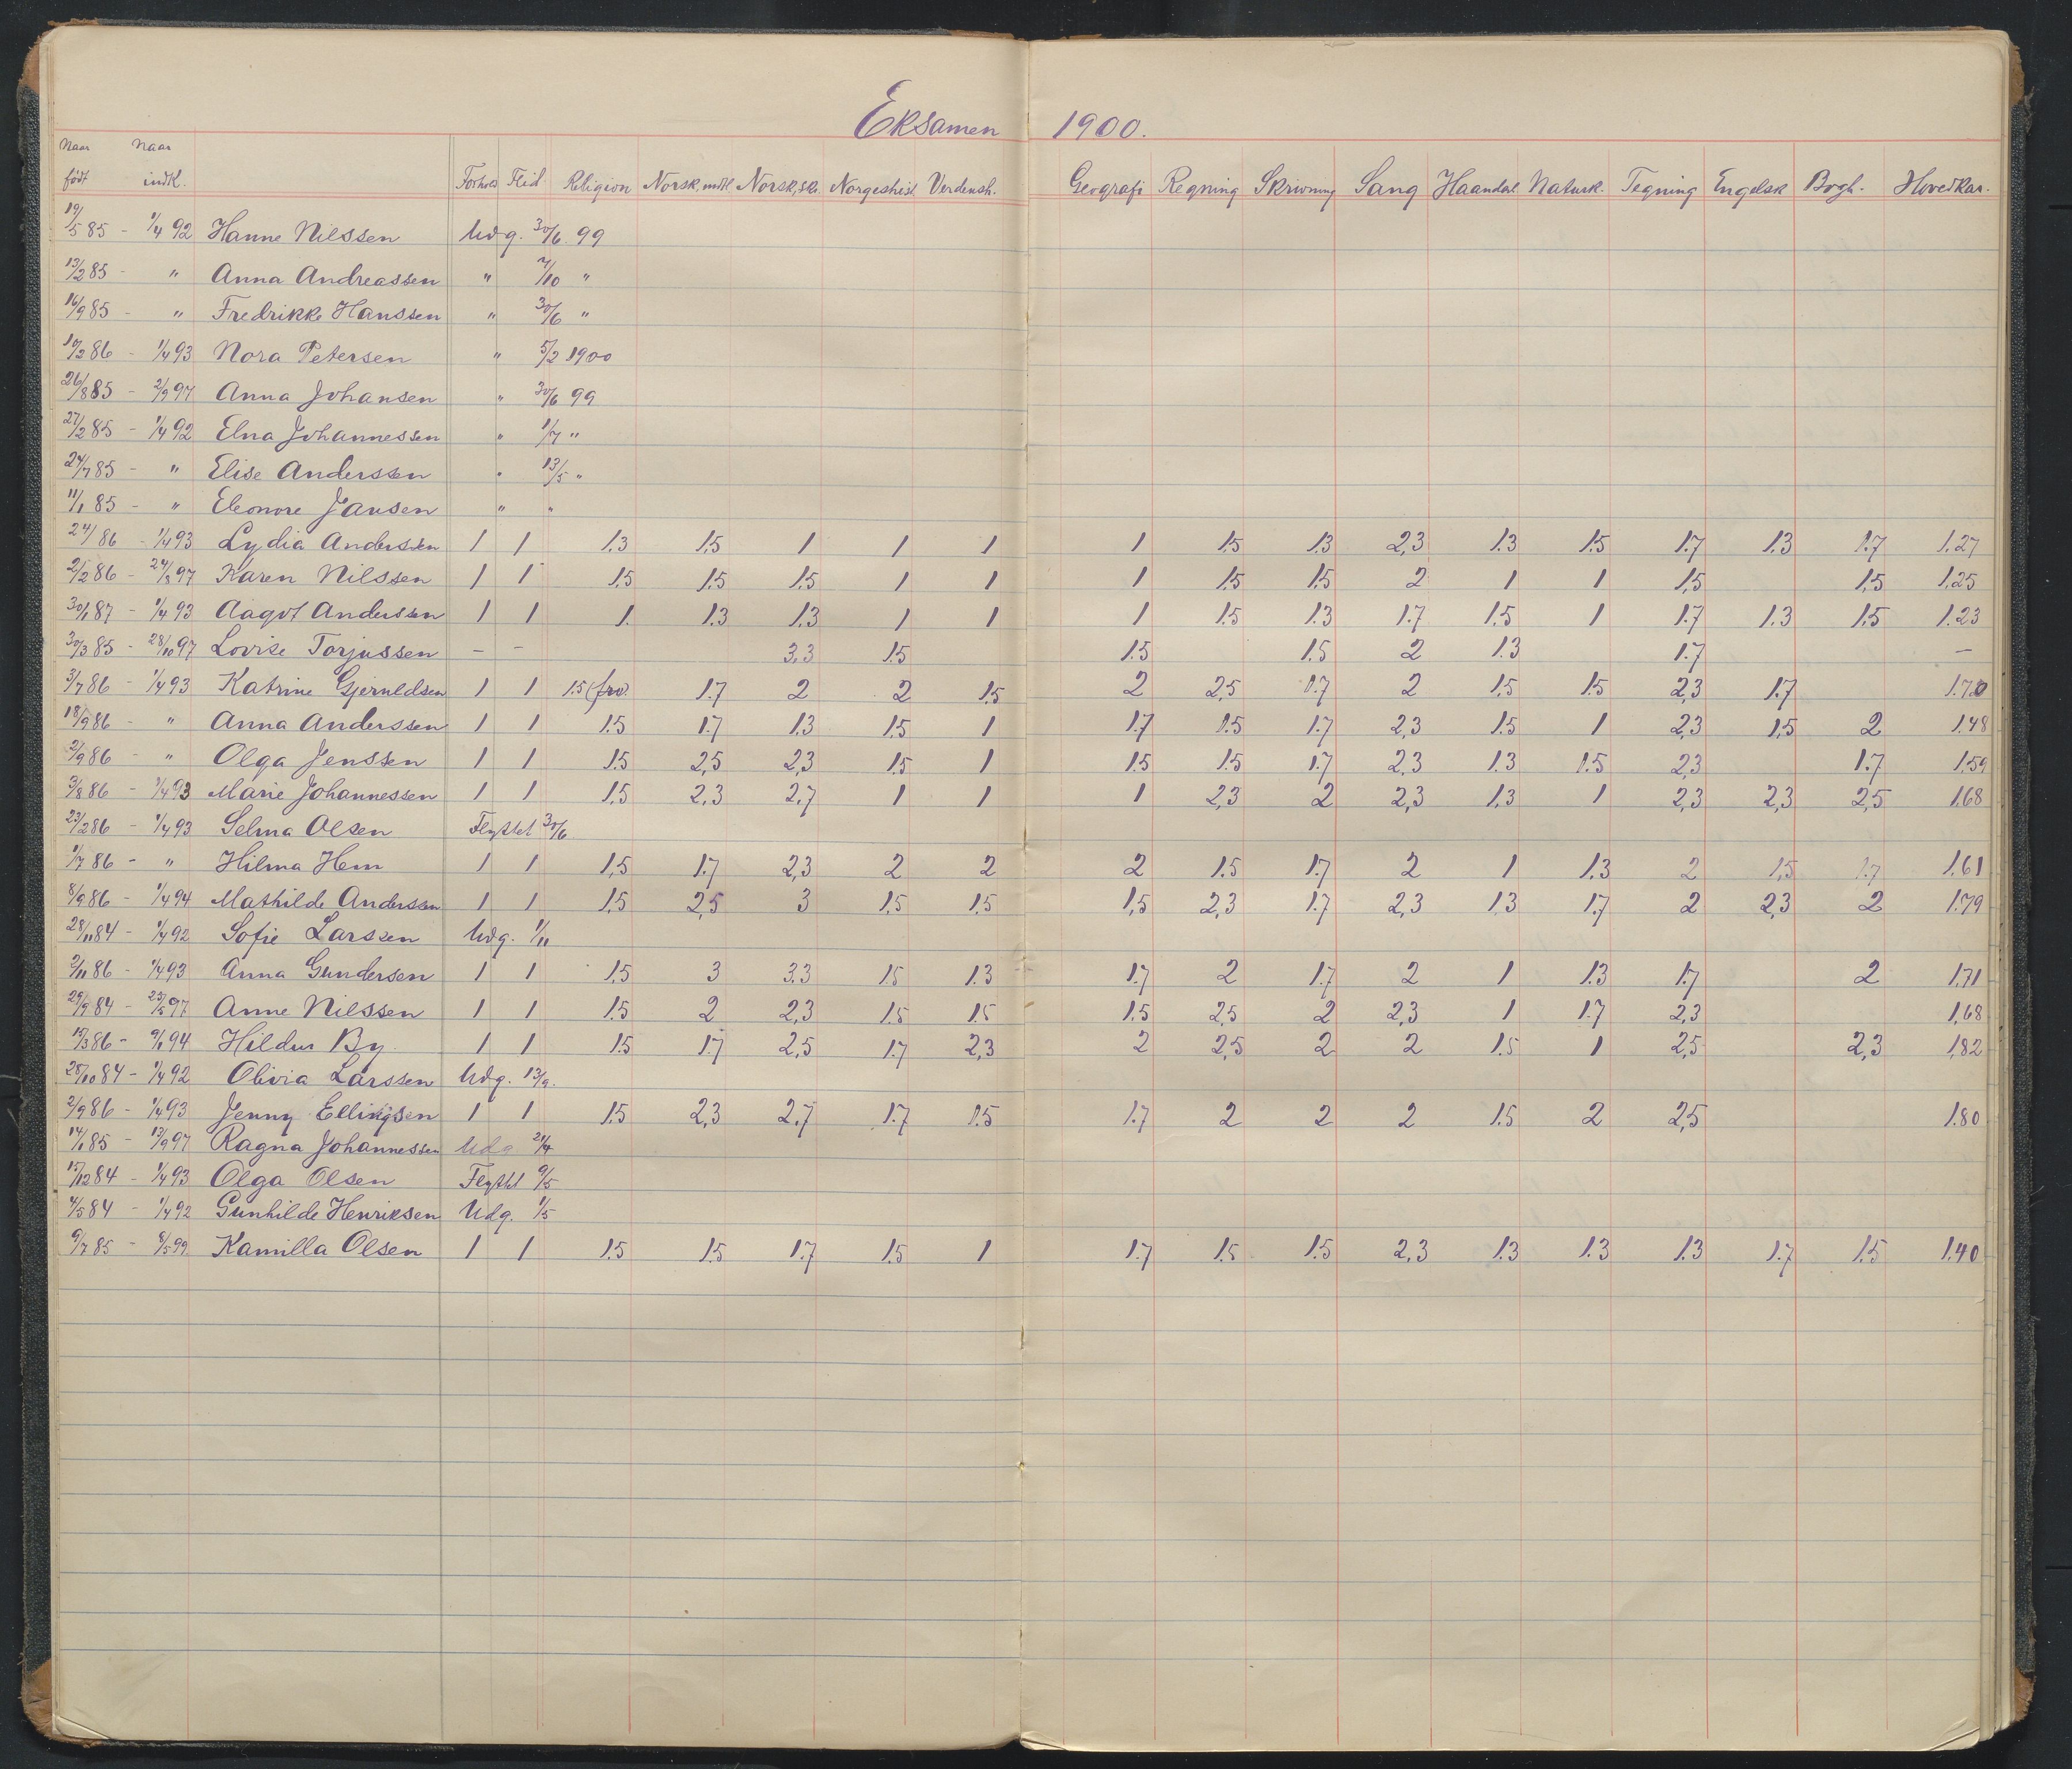 Eksamen 1900.
Naar født Naar indk. Forhold Flid Religion Norsk, mdl Norsk, skr. Norgeshist. Verdensh. Geografi Regning Skrivning Sang Haandar. Naturk. Tegning Engelsk Bogh. Hovedkar.
19/5 85 - 1/4 92 Hanne Nilssen Udg. 30/6 99
13/2 85 - " Anna Andreassen " 7/10 "
16/9 85 - " Fredrikke Hanssen " 30/6 "
10/2 86 - 1/4 93 Nora Petersen " 5/2 1900
26/8 85 - 2/9 97 Anna Johansen " 30/6 99
27/2 85 - 1/4 92 Elna Johannessen " 1/7 "
24/7 85 - " Elise Anderssen " 13/5 "
11/1 85 - " Eleonore Jansen " "
24/ 86 - 1/4 93 Lydia Anderssen 1 1 1.3 1.5 1 1 1 1 1.5 1.3 2,3 1.3 1.5 1.7 1.3 1.7 1.27
2/2 86 - 24/8 97 Karen Nilssen 1 1 1.5 1.5 1.5 1 1 1 1.5 1.5 2 1 1 1.5 1.5 1.25
30/1 87 - 1/4 93 Aagot Anderssen 1 1 1. 1.3 1.3 1 1 1 1.5 1.3 1.7 1.5 1 1.7 1.3 1.5 1.23
30/3 85 - 28/10 97 Lovise Torjussen - - 3.3 1.5 1.5 1.5 2 1.3 1.7 -
3/7 86 - 1/4 93 Katrine Gjeruldsen 1 1 1.5 (frv). 1.7 2 2 1.5 2 2,5 1.7 2 1.5 1.5 2,3 1.7 1.70
18/9 86 - " Anna Anderssen 1 1 1.5 1.7 1.3 1.5 1 1.7 1.5 1.7 2,3 1.5 1 2,3 1.5 2 1.48
2/9 86 - " Olga Jenssen 1 1 1.5 2,5 2,3 1.5 1 1.5 1.5 1.7 2,3 1.3 1.5 2,3 1.7 1.59
3/8 86 - 1/4 93 Marie Johannessen 1 1 1.5 2,3 2,7 1 1 1 2,3 2 2,3 1,3 1 2,3 2,3 2,5 1.68
23/2 86 - 1/4 93 Selma Olsen Flyttet 30/6
1/7 86 - " Hilma Hem 1 1 1,5 1.7 2,3 2 2 2 1.5 1.7 2 1 1.3 2 1,5 1.7 1.61
8/9 86 - 1/4 94 Mathilde Anderssen 1 1 1,5 2,5 3 1,5 1.5 1,5 2,3 1.7 2,3 1.3 1.7 2 2,3 2 1.79
28/11 84 - 1/4 92 Sofie Larssen Udg. 1/11
2/11 86 - 1/4 93 Anna Gundersen 1 1 1.5 3 3.3 1.5 1.3 1.7 2 1.7 2 1 1.3 1.7 2 1.71
29/9 84 - 25/5 97 Anne Nilssen 1 1 1.5 2 2,3 1.5 1.5 1.5 2,5 2 2,3 1 1.7 2,3 1,68
15/3 86 - 9/1 94 Hildur By 1 1 1.5 1.7 2,5 1.7 2,3 2 2,5 2 2 1.5 1 2,5 2,3 1.82
28/10 84 - 1/4 92 Olivia Larssen Udg. 13/9.
2/9 86 - 1/4 93 Jenny Ellingsen 1 1 1.5 2,3 2,7 1.7 1.5 1.7 2 2 2 1.5 2 2,5 1.80
14/1 85 - 13/9 97 Ragna Johannessen Udg 21/4
15/12 84 - 1/4 93 Olga Olsen Flyttet 9/5
4/5 84 - 1/4 92 Gunhilde Henriksen Udg. 1/5
9/7 85 - 8/5 99 Kamilla Olsen 1 1 1.5 1.5 1.7 1.5 1 1.7 1.5 1.5 2,3 1.3 1.3 1.3 1.7 1.5 1.40